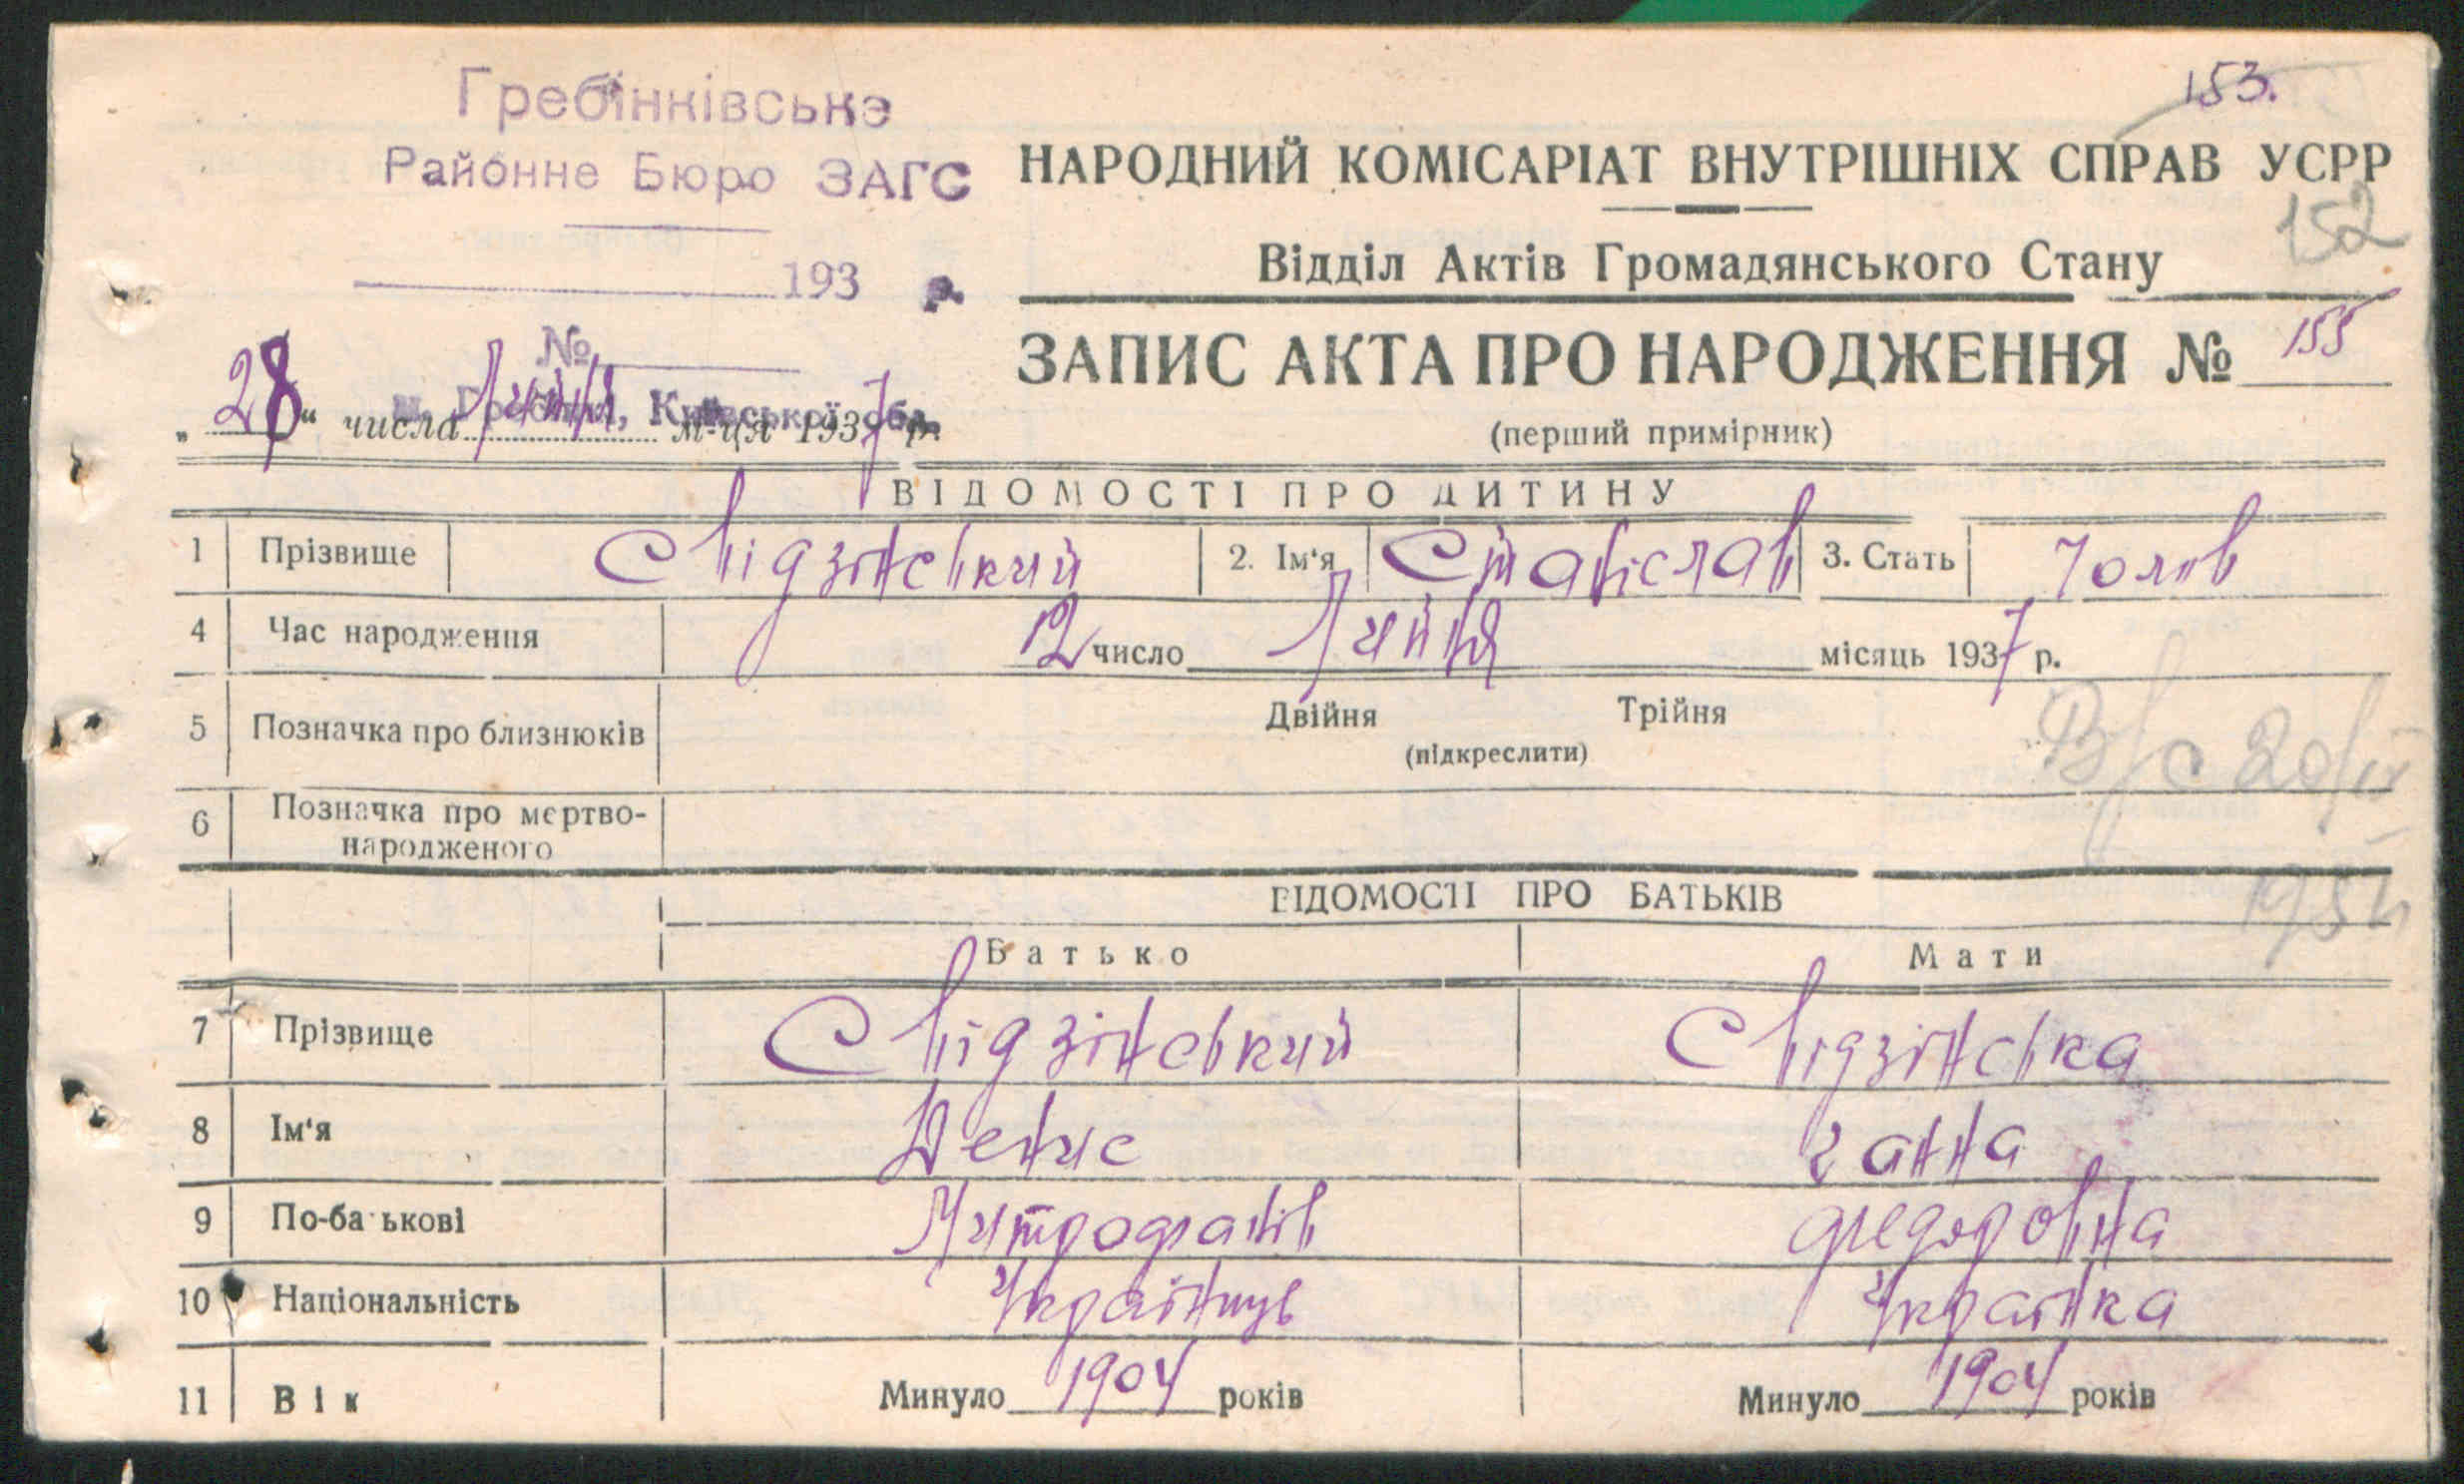 153.
Гребінківське
Районне Бюро ЗАГС
193 р.
№
м. Гребінка, Київської обл.
НАРОДНИЙ КОМІСАРІАТ ВНУТРІШНІХ СПРАВ УСРР
152
Відділ Актів Громадянського Стану
ЗАПИС АКТА ПРО НАРОДЖЕННЯ № 155
(перший примірник)
„28“ числа Липня м-ця 1937 р.
ВІДОМОСТІ ПРО ДИТИНУ
1 Прізвище Свідзінський 2. Ім'я Станіслав 3. Стать Чолов
4 Час народження 12 число Липня місяць 1937 р.
5 Позначка про близнюків Двійня Трійня
(підкреслити)
В/с 20/IV
6 Позначка про мертво-
народженого
1954
ВІДОМОСТІ ПРО БАТЬКІВ
Батько Мати
7 Прізвище Свідзінський Свідзінська
8 Ім'я Денис Ганна
9 По-батькові Митрофанів Федоровна
10 Національність Українець Українка
11 Вік Минуло 1904 років Минуло 1904 років